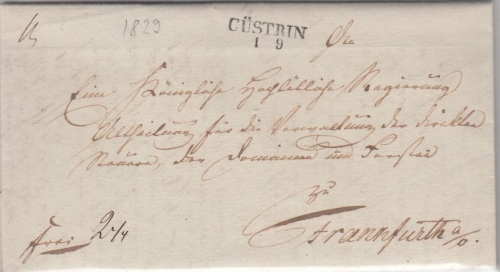 1829
CÜSTRIN
1 9
An
Eine Königliche Hochlöbliche Regierung
Abtheilung für die Verwaltung der direkten
Steuern, der Domainen und Forsten
zu
Frannkfurth a/o.
frei 2 1/4